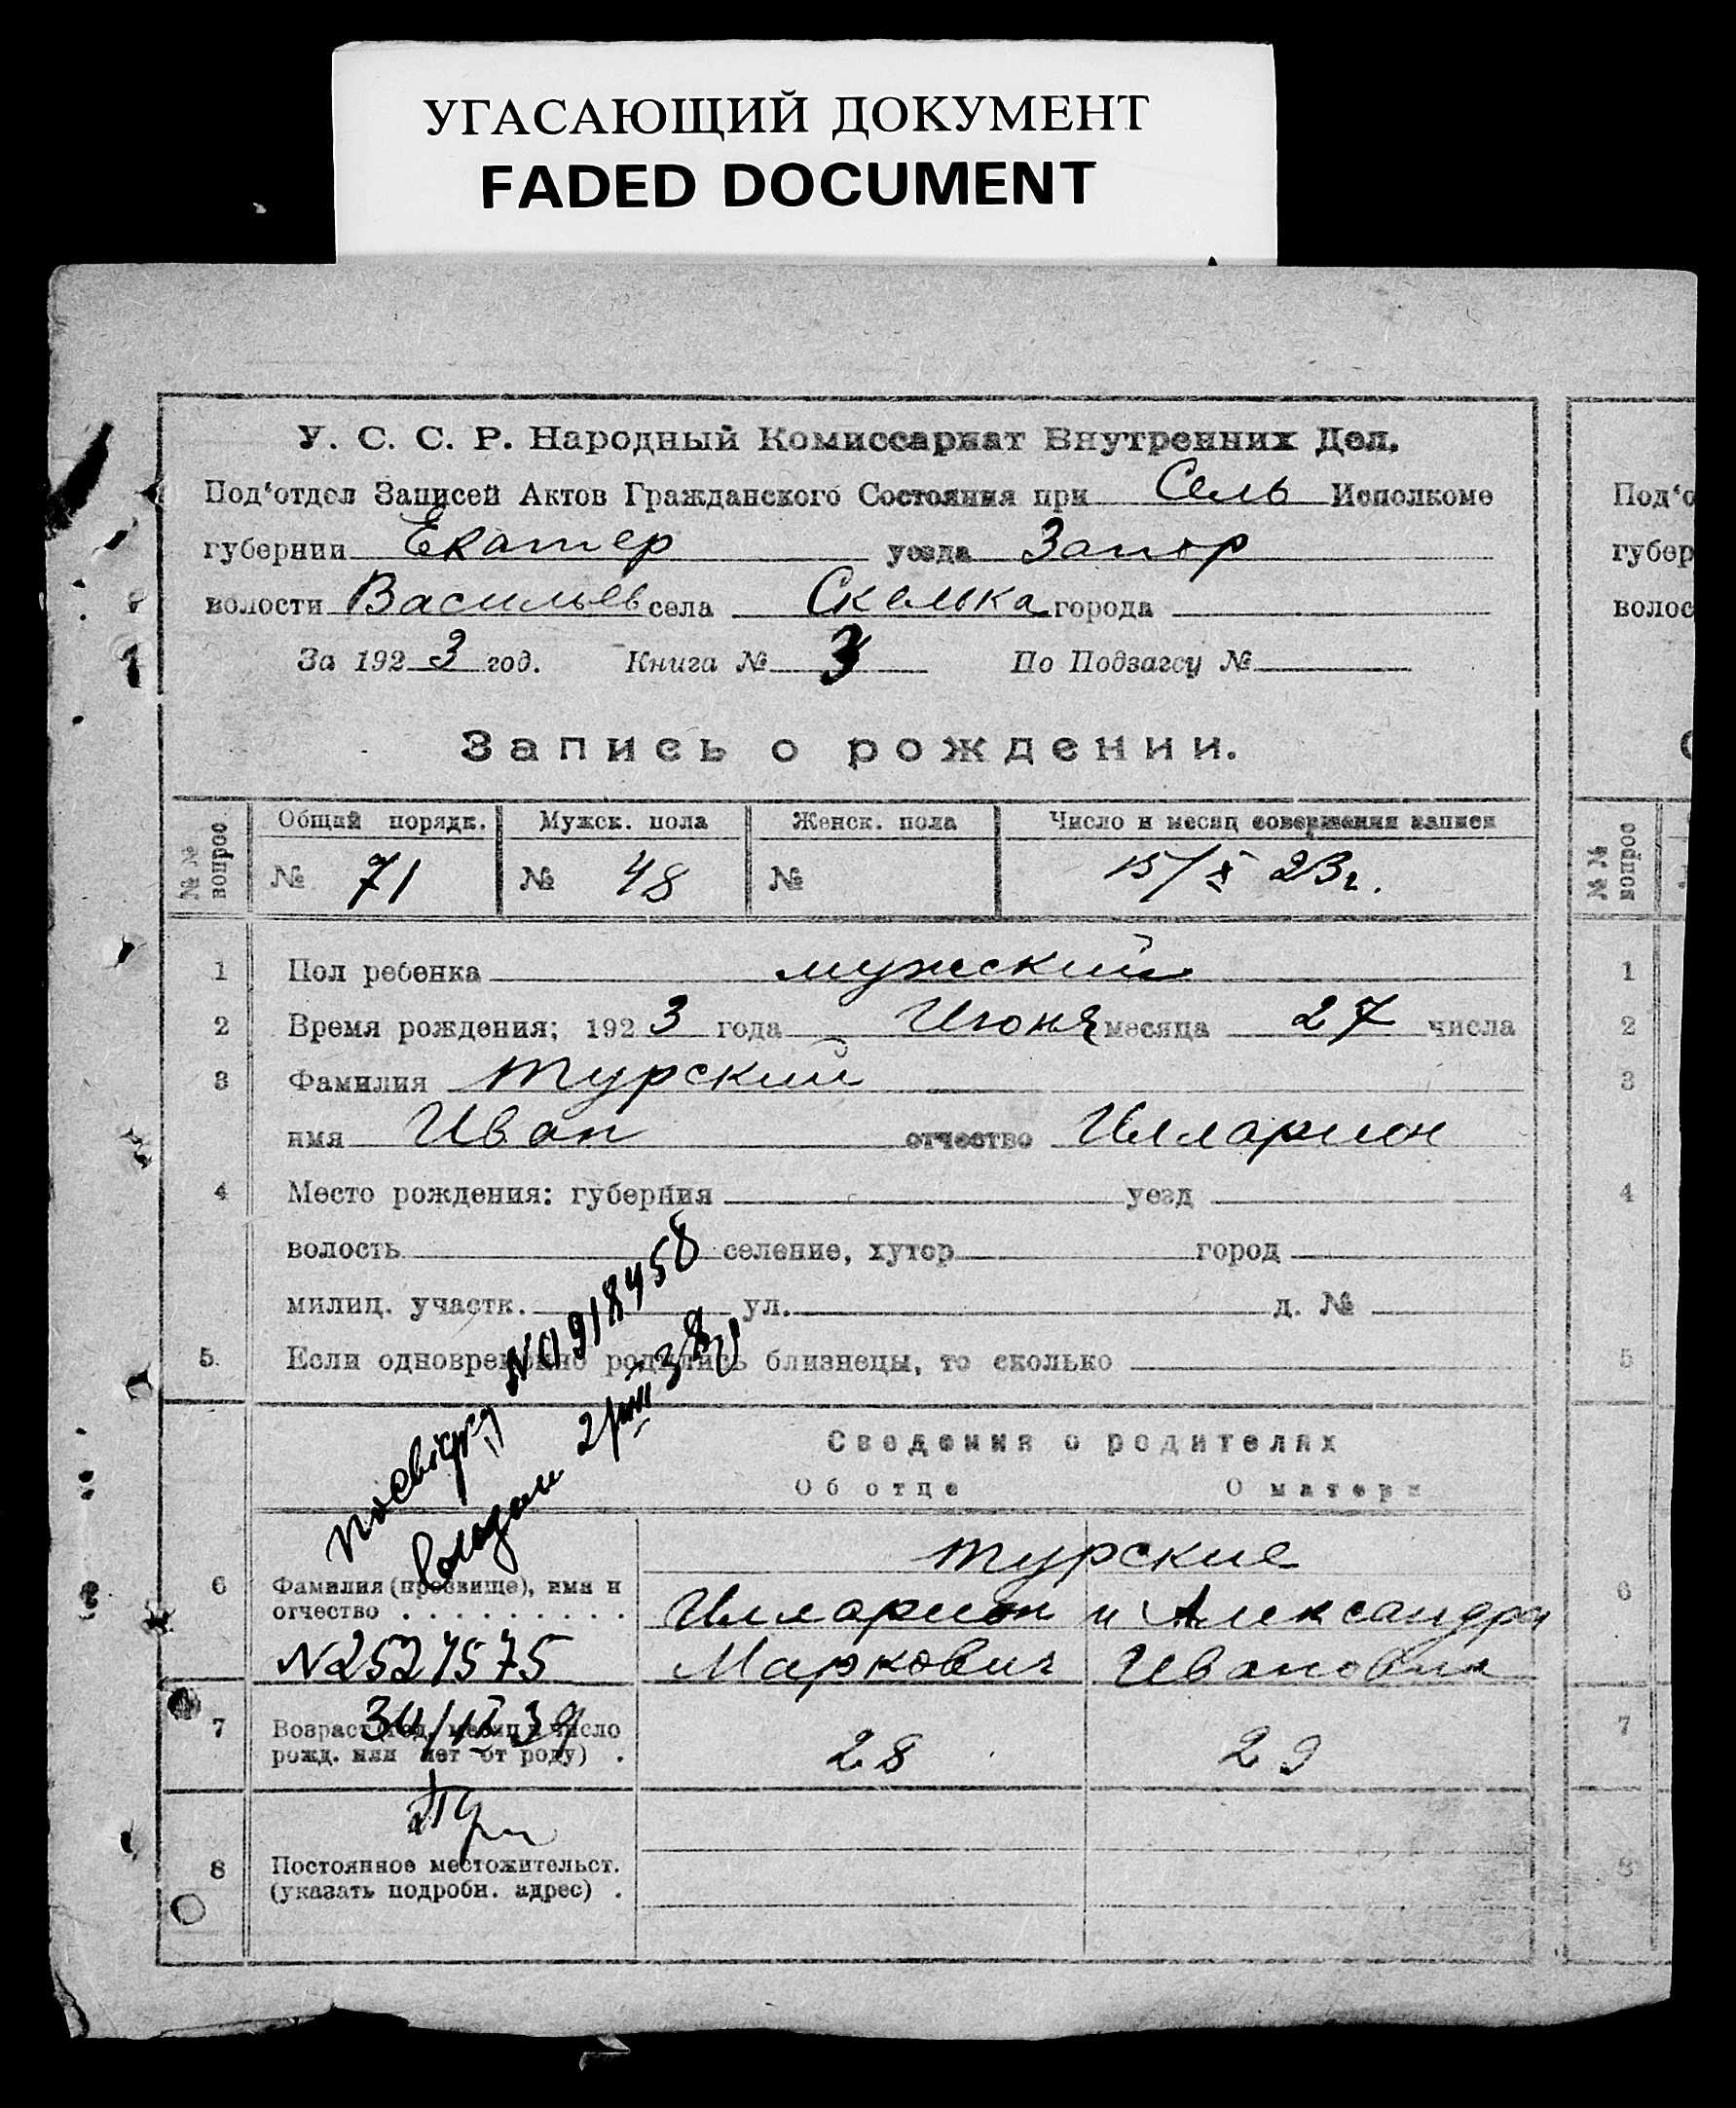 УГАСАЮЩИЙ ДОКУМЕНТ
FADED DOCUMENT
У. С. С. Р. Народный Комиссариат Внутренних Дел.
Под‘отдел Записей Актов Гражданского Состояния при Сель Исполкоме
губернии Екатер уезда Запор
волости Васильев села Скелька города
За 1923 год. Книга № 3 По Подзагсу №
Запись о рождении.
№ № вопрос
Общий порядк. Мужск. пола Женск. пола Число и месяц совершения записи
№ 71 № 48 № 15/X 23 г.
1 Пол ребенка мужский
2 Время рождения; 1923 года Июня месяца 27 числа
3 Фамилия Турский
имя Иван отчество Илларион
4 Место рождения: губерния уезд
волость селение, хутор город
милиц. участк. ул. д. №
5. Если одновременно родились близнецы, то сколько
N0918458
2/VIII 38
Сведения о родителях
Об отце О матери
Турские
6 Фамилия (прозвище), имя и
отчество Илларион и Александра
N2521575 Маркович Ивановна
7 Возраст (год, месяц и число
рожд. или лет от роду) 28 29
8 Постоянное местожительст.
(указать подробн. адрес)
Под‘о
губер
волос
№ № вопрос
1
2
3
4
5
6
7
8